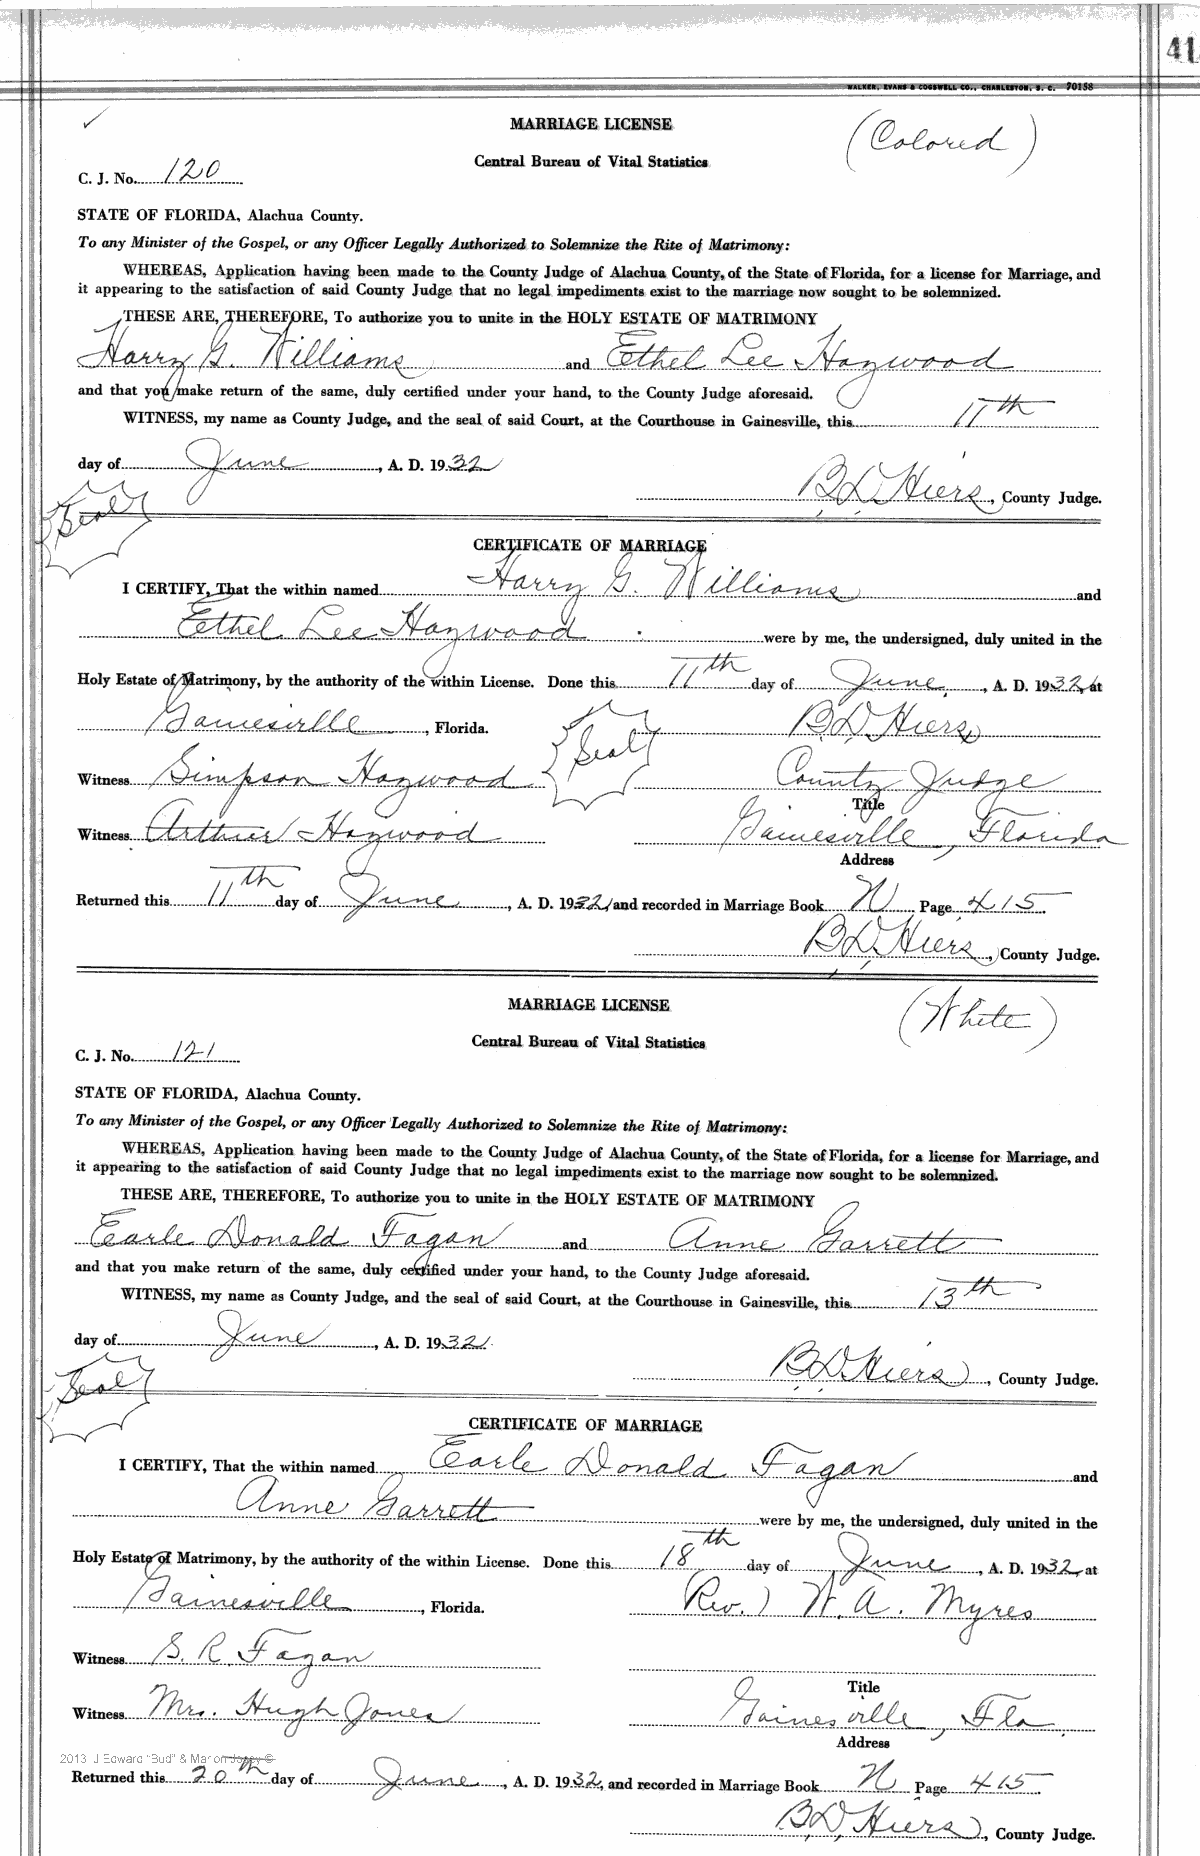 41
WALKER, EVANS & COGSWELL CO., CHARLESTON, S. C. 70158
MARRIAGE LICENSE
(Colored)
Central Bureau of Vital Statistics
C. J. No. 120
STATE OF FLORIDA, Alachua County.
To any Minister of the Gospel, or any Officer Legally Authorized to Solemnize the Rite of Matrimony:
WHEREAS, Application having been made to the County Judge of Alachua County, of the State of Florida, for a license for Marriage, and
it appearing to the satisfaction of said County Judge that no legal impediments exist to the marriage now sought to be solemnized.
THESE ARE, THEREFORE, To authorize you to unite in the HOLY ESTATE OF MATRIMONY
Harry G. Williams and Ethel Lee Haywood
and that you make return of the same, duly certified under your hand, to the County Judge aforesaid.
WITNESS, my name as County Judge, and the seal of said Court, at the Courthouse in Gainesville, this 11th
day of June, A. D. 1932
B. D. Hiers, County Judge.
Seal
CERTIFICATE OF MARRIAGE
I CERTIFY, That the within named Harry G. Williams and
Ethel Lee Haywood were by me, the undersigned, duly united in the
Holy Estate of Matrimony, by the authority of the within License. Done this 11th day of June, A. D. 1932, at
Gainesville, Florida. Seal B. D. Hiers
Witness Simpson Haywood County Judge
Title
Witness Arthur Haywood Gainesville, Florida
Address
Returned this 11th day of June, A. D. 1932, and recorded in Marriage Book N Page 415
B. D. Hiers, County Judge.
MARRIAGE LICENSE
(White)
Central Bureau of Vital Statistics
C. J. No. 121
STATE OF FLORIDA, Alachua County.
To any Minister of the Gospel, or any Officer Legally Authorized to Solemnize the Rite of Matrimony:
WHEREAS, Application having been made to the County Judge of Alachua County, of the State of Florida, for a license for Marriage, and
it appearing to the satisfaction of said County Judge that no legal impediments exist to the marriage now sought to be solemnized.
THESE ARE, THEREFORE, To authorize you to unite in the HOLY ESTATE OF MATRIMONY
Earle Donald Fagan and Anne Garrett
and that you make return of the same, duly certified under your hand, to the County Judge aforesaid.
WITNESS, my name as County Judge, and the seal of said Court, at the Courthouse in Gainesville, this 13th
day of June, A. D. 1932
B. D. Hiers, County Judge.
Seal
CERTIFICATE OF MARRIAGE
I CERTIFY, That the within named Earle Donald Fagan and
Anne Garrett were by me, the undersigned, duly united in the
Holy Estate of Matrimony, by the authority of the within License. Done this 18th day of June, A. D. 1932, at
Gainesville, Florida. Rev.) W. A. Myres
Witness S. R. Fagan
Title
Witness Mrs. Hugh Jones Gainesville, Fla.
Address
2013 J Edward "Bud" & Marion Josey ©
Returned this 20th day of June, A. D. 1932, and recorded in Marriage Book N Page 415
B. D. Hiers, County Judge.